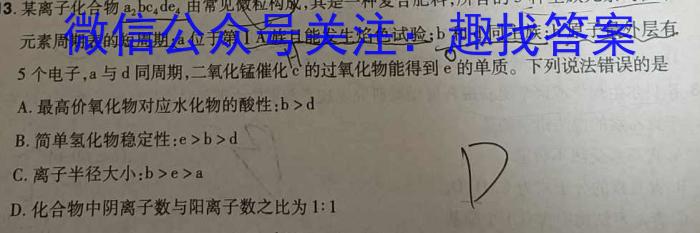 13. 某离子化合物a₂bc₄de₄由常见微粒构成,其是一种复合肥料,
元素周期表的短周期,a位于第ⅠA族且能发生焰色试验;b
微信公众号关注:趣找答案
外层有
5个电子,a与d同周期,二氧化锰催化c的过氧化物能得到e的单质。下列说法错误的是
A. 最高价氧化物对应水化物的酸性:b>d
B. 简单氢化物稳定性:e>b>d
C. 离子半径大小:b>e>a
D. 化合物中阴离子数与阳离子数之比为1:1
D